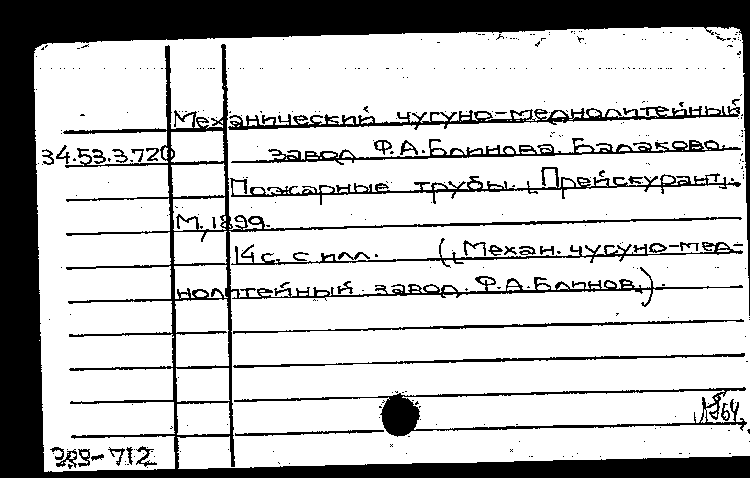 Механический чугуно-меднолитейный
34.53.3.720 завод Ф.А.Блинова. Балаково.
Пожарные трубы. [Прейскурант].
М., 1899.
14 с. с илл. ([Механ. чугуно-мед-
нолитейный завод. Ф.А.Блинов.]).
64.
-712